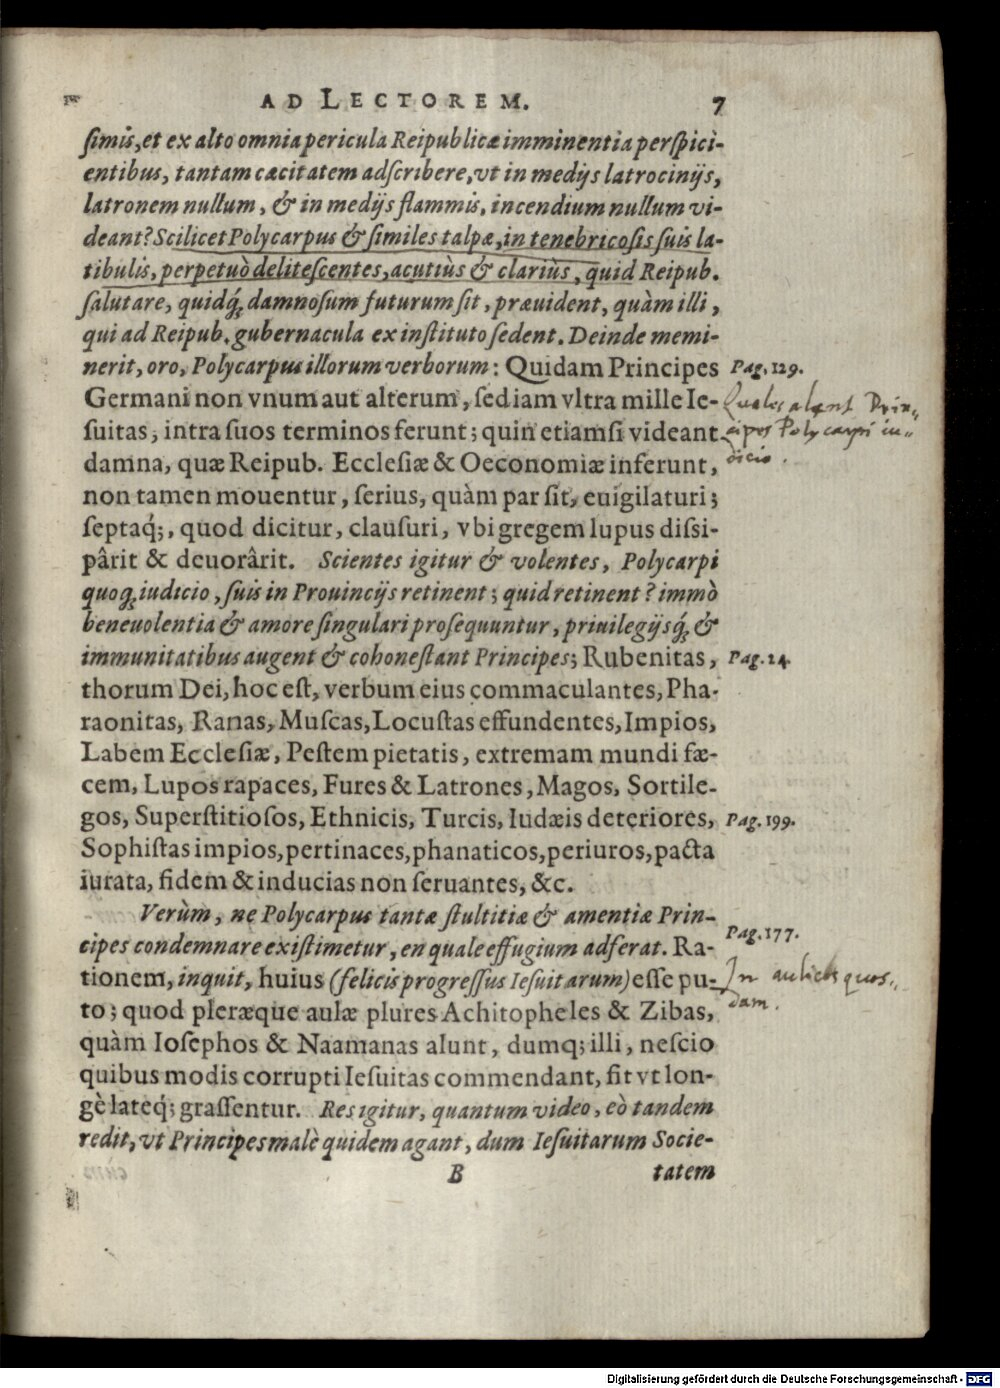 AD LECTOREM. 7
ſimis, et ex alto omnia pericula Reipublicæ imminentia perſpici-
entibus, tantam cæcitatem adſcribere, vt in medijs latrocinijs,
latronem nullum, & in medijs flammis, incendium nullum vi-
deant? Scilicet Polycarpus & ſimiles talpæ, in tenebricoſis ſuis la-
tibulis, perpetuò deliteſcentes, acutiùs & clariùs, quid Reipub.
ſalutare, quidq́; damnoſum futurum ſit, præuident, quàm illi,
qui ad Reipub. gubernacula ex inſtituto ſedent. Deinde memi-
nerit, oro, Polycarpus illorum verborum: Quidam Principes
Pag. 129.
Germani non vnum aut alterum, ſed iam vltra mille Ie-
ſuitas, intra ſuos terminos ferunt; quin etiamſi videant
damna, quæ Reipub. Eccleſiæ & Oeconomiæ inferunt,
Quales alant Prin-
cipes Polycarpi iu-
dicio.
non tamen mouentur, ſerius, quàm par ſit, euigilaturi;
ſeptaq́;, quod dicitur, clauſuri, vbi gregem lupus diſsi-
pârit & deuorârit. Scientes igitur & volentes, Polycarpi
quoq; iudicio, ſuis in Prouincijs retinent; quid retinent? immò
beneuolentia & amore ſingulari proſequuntur, priuilegijsq́; &
immunitatibus augent & cohoneſtant Principes; Rubenitas,
Pag. 24.
thorum Dei, hoc eſt, verbum eius commaculantes, Pha-
raonitas, Ranas, Muſcas, Locuſtas effundentes, Impios,
Labem Eccleſiæ, Peſtem pietatis, extremam mundi fæ-
cem, Lupos rapaces, Fures & Latrones, Magos, Sortile-
gos, Superſtitioſos, Ethnicis, Turcis, Iudæis deteriores,
Pag. 199.
Sophiſtas impios, pertinaces, phanaticos, periuros, pacta
iurata, fidem & inducias non ſeruantes, &c.
Verùm, ne Polycarpus tantæ ſtultitiæ & amentiæ Prin-
cipes condemnare exiſtimetur, en quale effugium adferat. Ra-
Pag. 177.
tionem, inquit, huius (felicis progreſſus Ieſuitarum) eſſe pu-
to; quod pleræque aulæ plures Achitopheles & Zibas,
In aulicis quos-
dam.
quàm Ioſephos & Naamanas alunt, dumq; illi, neſcio
quibus modis corrupti Ieſuitas commendant, fit vt lon-
gè lateq́; graſſentur. Res igitur, quantum video, eò tandem
redit, vt Principes malè quidem agant, dum Ieſuitarum Socie-
B tatem
Digitalisierung gefördert durch die Deutsche Forschungsgemeinschaft - DFG